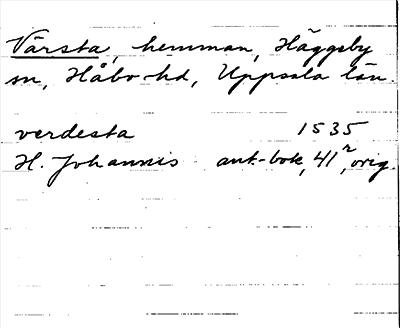 Värsta, hemman, Häggeby
sn, Håbo hd, Uppsala län.
verdesta 1535
H. Johannis ant.-bok, 41r, orig.